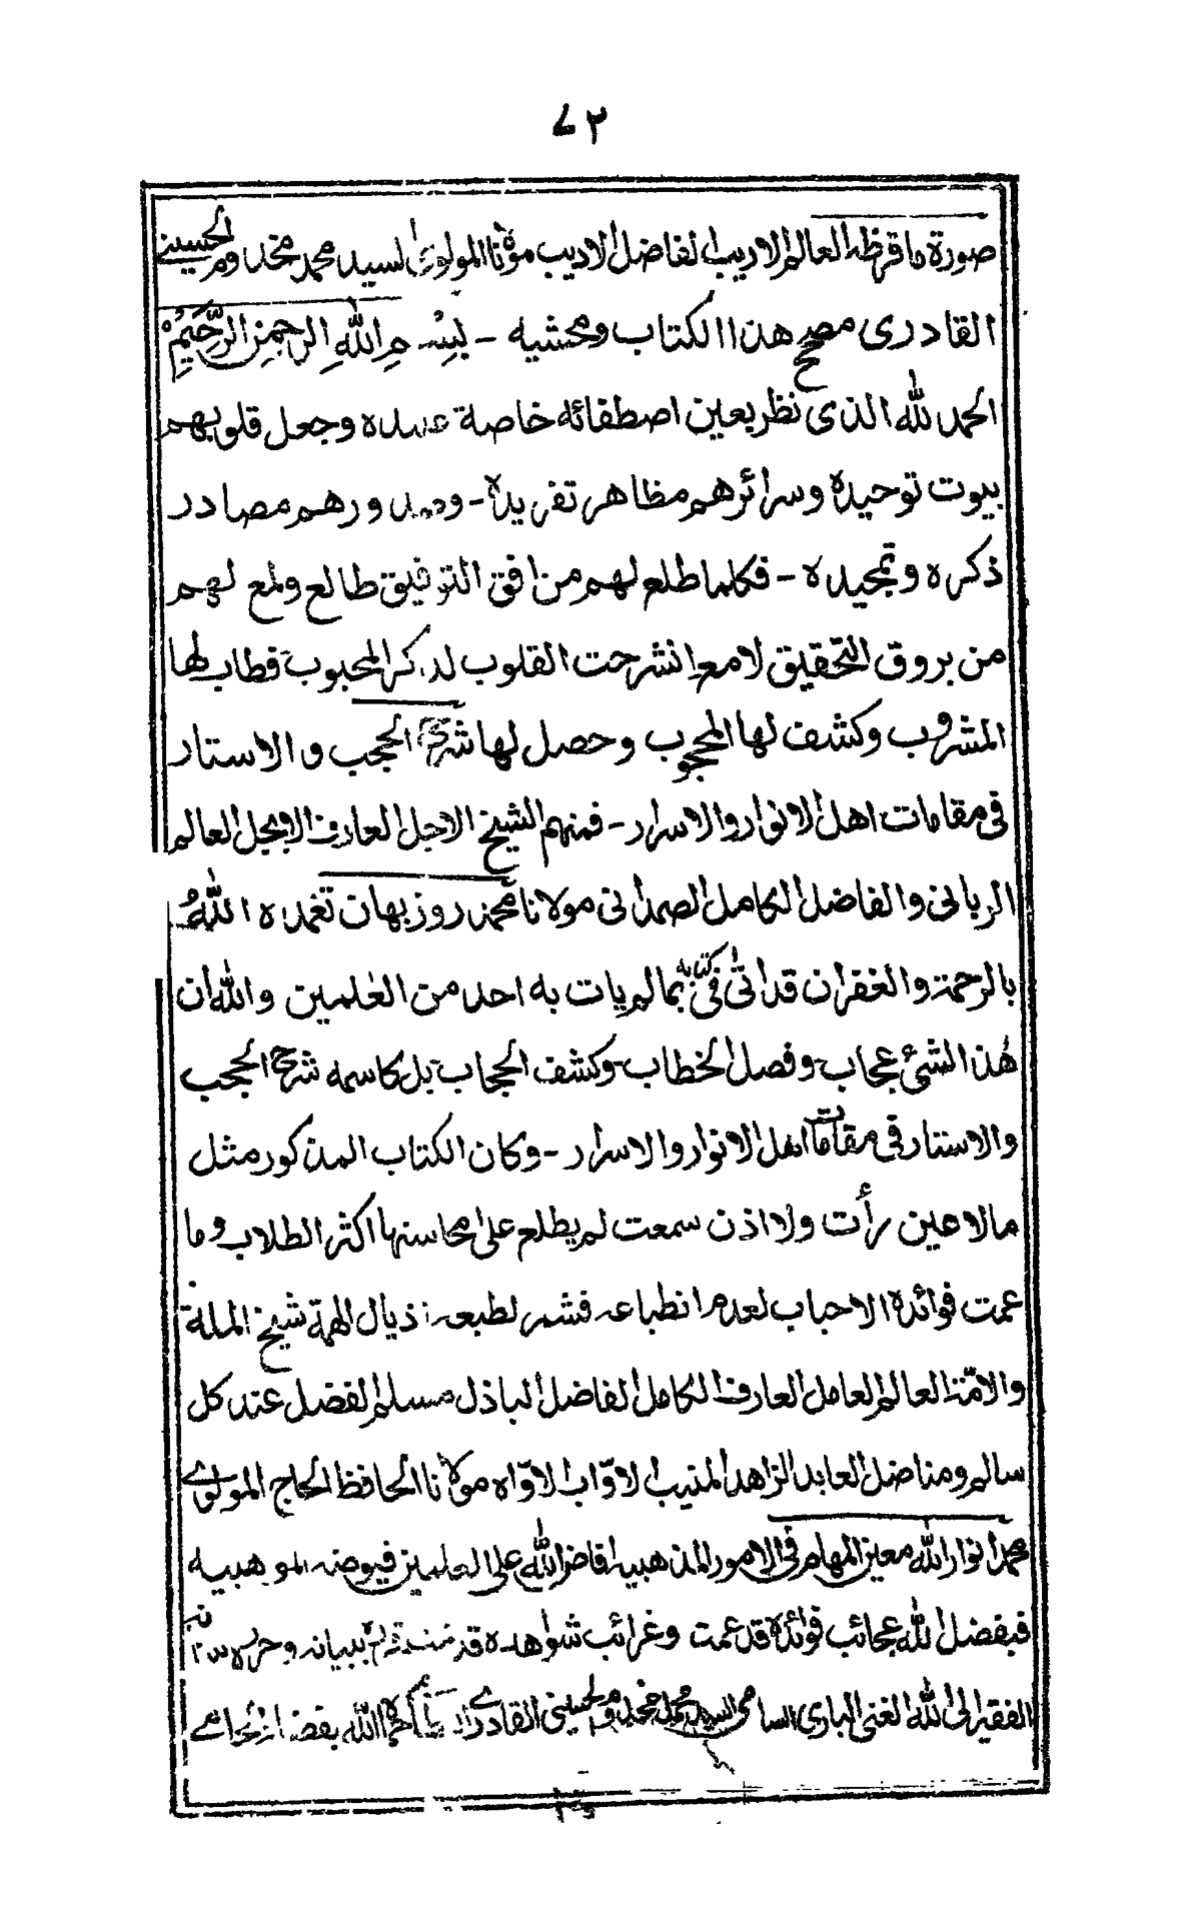 ٧٢
صورة ما قرظه العالم الاريب الفاضل الاديب مولانا المولوي السيد محمد مخدوم الحسيني
القادرى مصحح هذا الكتاب ومحشيه - بِسْمِ اللهِ الرحمن الرَّحِيمِ
الحمد لله الذى نظر بعين اصطفائه خاصة عبيده وجعل قلوبهم
بيوت توحيده وسرائرهم مظاهر تفريده - وصدورهم مصادر
ذكره وتمجيده - فكلما طلع لهم من افق التوفيق طالع ولمع لهم
من بروق التحقيق لامع انشرحت القلوب لذكر المحبوب فطاب لها
المشروب وكشف لها المحجوب وحصل لها شرح الحجب والاستار
فى مقامات اهل الانوار والاسرار - فمنهم الشيخ الاجل العارف الابجل العالم
الربانى والفاضل الكامل الصمدانى مولانا محمد روزبهان تغمده اللهُ
بالرحمة والغفران قد اتى فى كتابه بما لم يات به احد من العٰلمين والله ان
هٰذا لشئ عجاب وفصل الخطاب وكشف الحجاب بل كاسمه شرح الحجب
والاستار فى مقامات اهل الانوار والاسرار - وكان الكتاب المذكور مثل
مالا عين رأت ولا اذن سمعت لم يطلع على محاسنها اكثر الطلاب وما
عمت فوائده الاحباب لعدم انطباعه فشمر لطبعه اذيال الهمة شيخ الملة
والامّة العالم العامل العارف الكامل الفاضل الباذل مسلم الفضل عند كل
سالم ومناضل العابد الزاهد المنيب الاوّاب الاوّاه مولانا الحافظ الحاج المولوي
محمد انوار الله معين المهام فى الامور المذهبيه افاض الله على العلمين فيوضه الموهبيه
فبفضل الله عجائب فوائده قد عمت وغرائب شواهده قد ببيانه وحرره
الفقير الى الله الغنى البارى السامى السيد محمد مخدوم الحسينى القادرى اكرمه الله بفضله